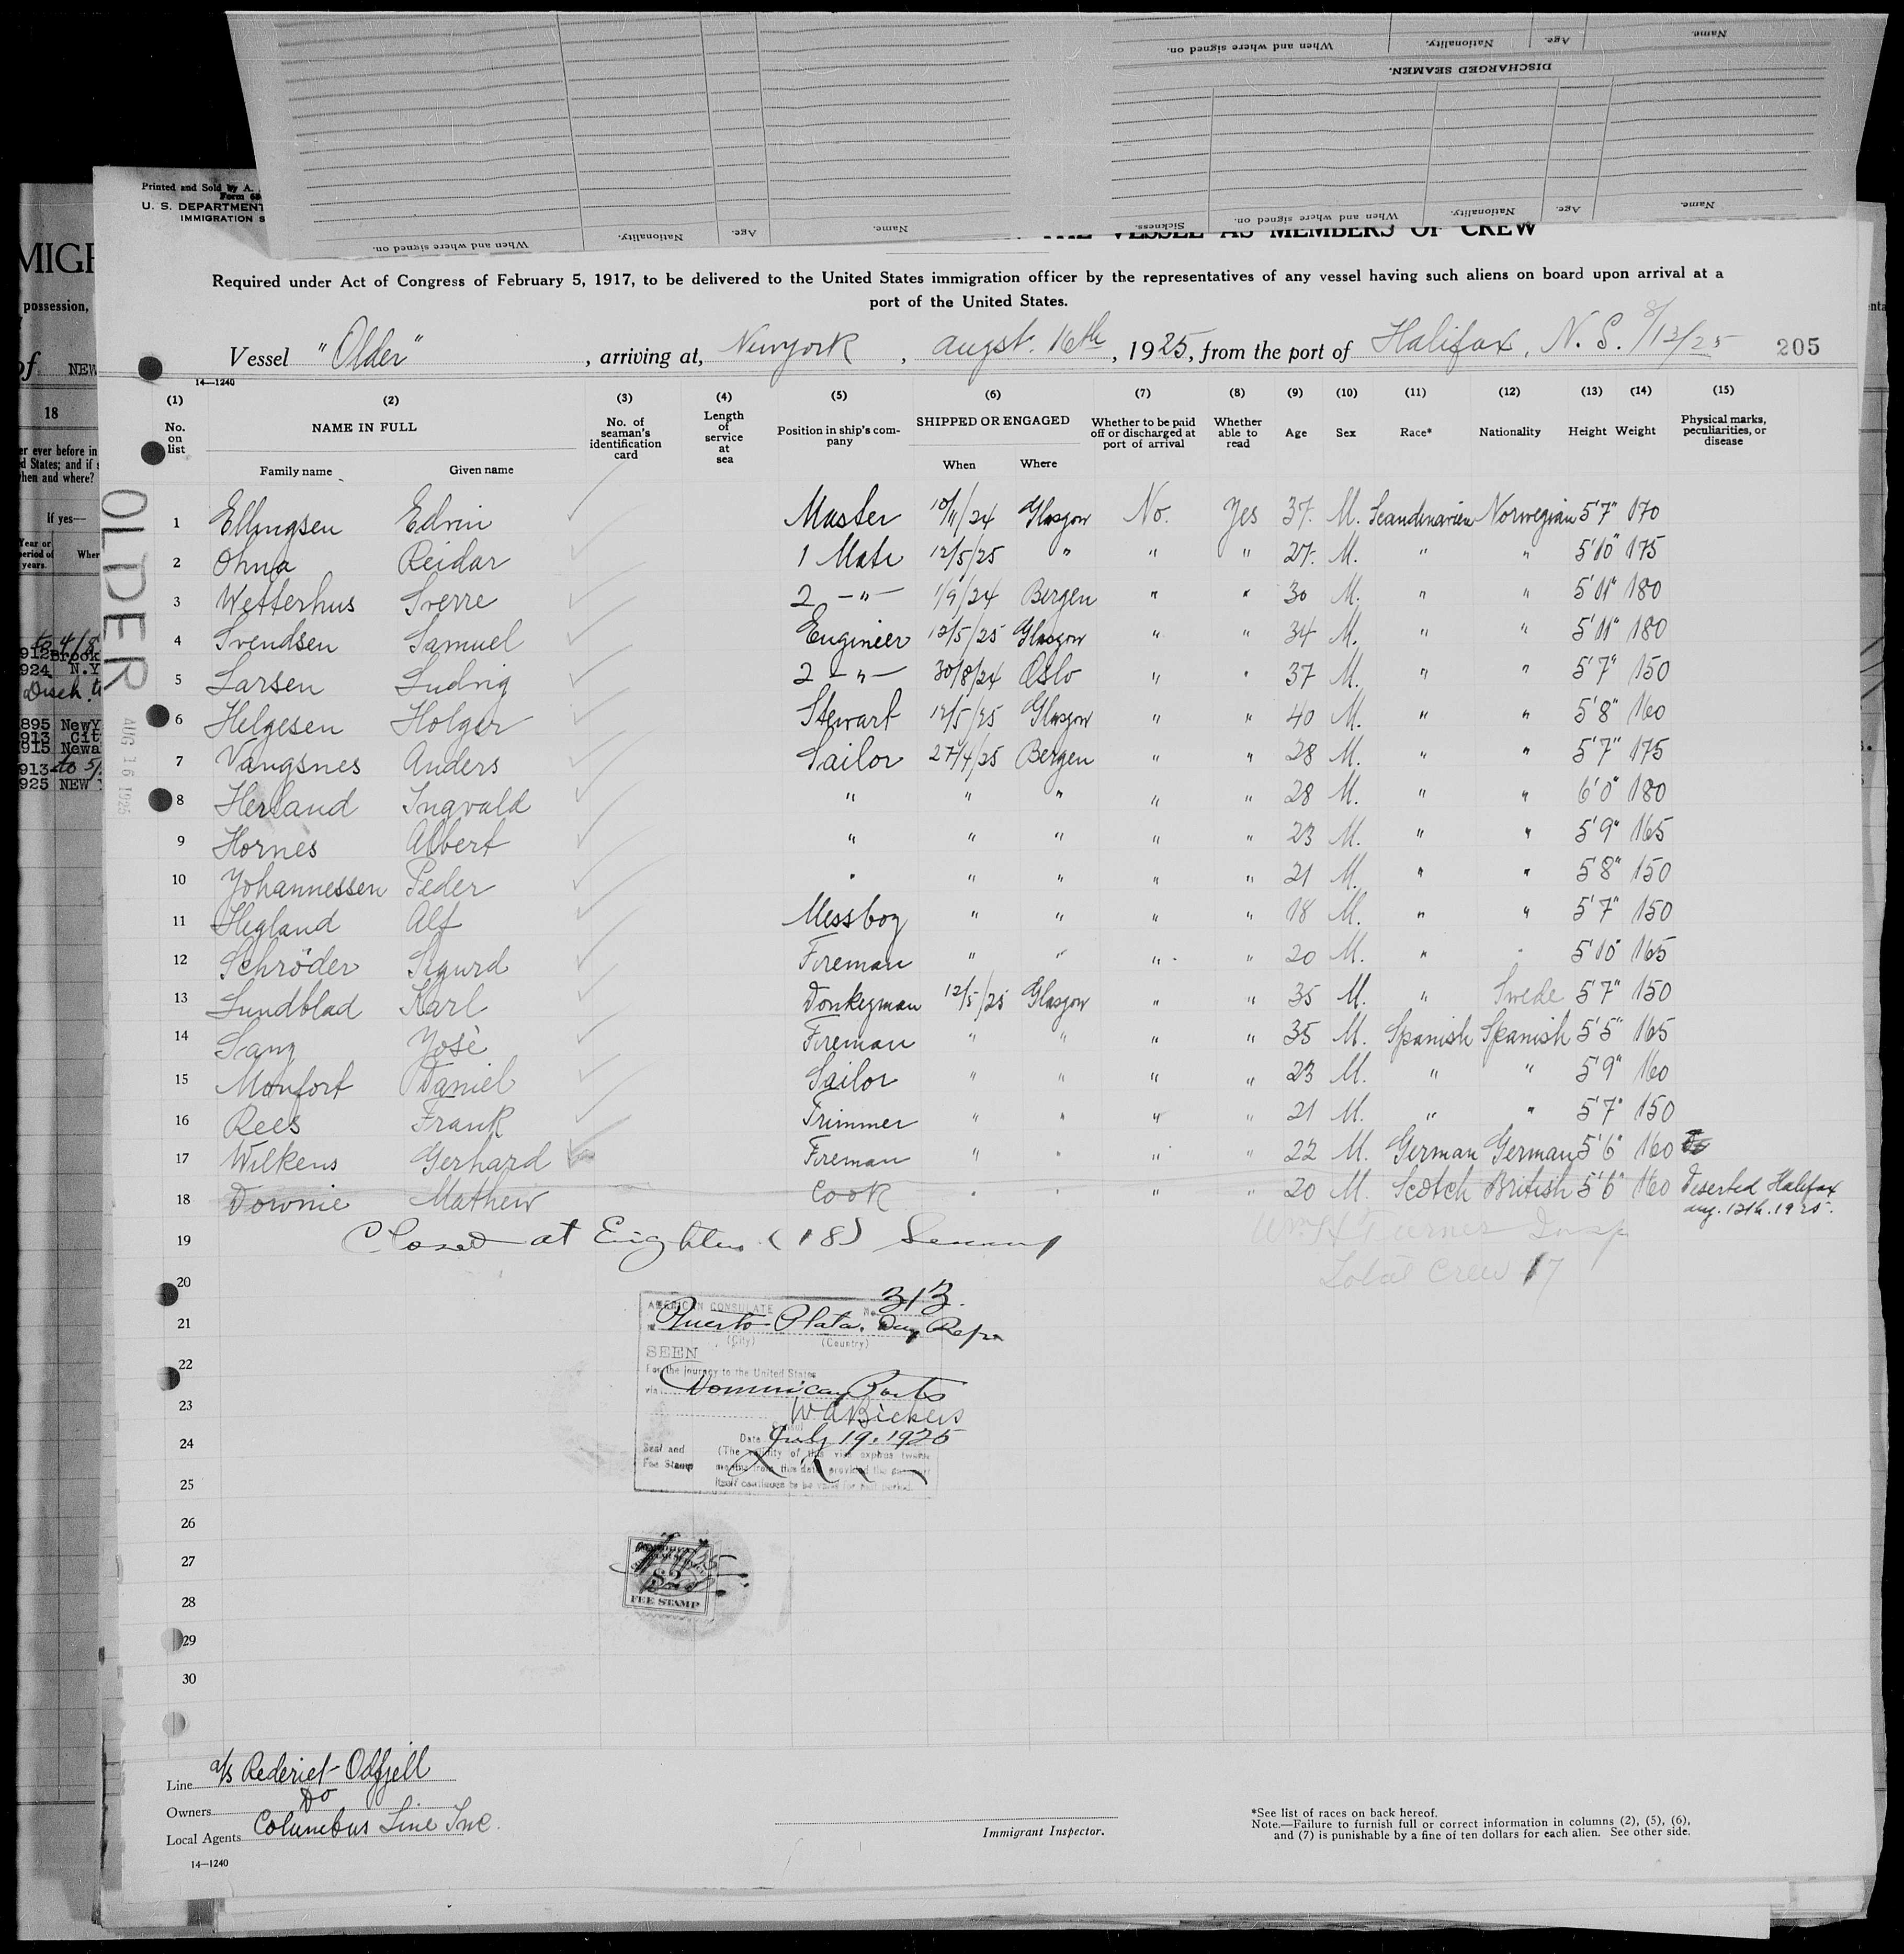 When and where signed on.
Nationality.
Age.
Name.
DISCHARGED SEAMEN.
When and where signed on.
Nationality.
Age.
Name.
Sickness.
When and where signed on.
Nationality.
Age.
Name.
Printed and Sold by A.
U. S. DEPARTMENT
IMMIGRATION S
THE VESSEL AS MEMBERS OF CREW
Required under Act of Congress of February 5, 1917, to be delivered to the United States immigration officer by the representatives of any vessel having such aliens on board upon arrival at a
port of the United States.
Vessel "Older", arriving at, Newyork, augst. 16th, 1925, from the port of Halifax, N. S. 8/13/25 205
14—1240
(1) (2) (3) (4) (5) (6) (7) (8) (9) (10) (11) (12) (13) (14) (15)
No. on list NAME IN FULL No. of seaman's identification card Length of service at sea Position in ship's company SHIPPED OR ENGAGED Whether to be paid off or discharged at port of arrival Whether able to read Age Sex Race* Nationality Height Weight Physical marks, peculiarities, or disease
Family name Given name When Where
1 Ellingsen Edvin Master 10/11/24 Glasgow No. Yes 37. M. Scandinavien Norwegian 5'7" 170
2 Ohna Reidar 1 Mate 12/5/25 " " " 27. M. " " 5'10" 175
3 Wetterhus Sverre 2 -"- 1/9/24 Bergen " " 30 M. " " 5'11" 180
4 Svendsen Samuel Engineer 12/5/25 Glasgow " " 34 M. " " 5'11" 180
5 Larsen Ludvig 2 -"- 30/8/24 Oslo " " 37 M. " " 5'7" 150
6 Helgesen Holger Stewart 12/5/25 Glasgow " " 40 M. " " 5'8" 160
7 Vangsnes Anders Sailor 27/4/25 Bergen " " 28 M. " " 5'7" 175
8 Herland Ingvald " " " " " 28 M. " " 6'0" 180
9 Hornes Albert " " " " " 23 M. " " 5'9" 165
10 Johannessen Peder " " " " " 21 M. " " 5'8" 150
11 Hegland Alf Messboy " " " " 18 M. " " 5'7" 150
12 Schröder Sigurd Fireman " " " " 20 M. " " 5'10" 165
13 Lundblad Karl Donkeyman 12/5/25 Glasgow " " 35 M. " Swede 5'7" 150
14 Sanz José Fireman " " " " 35 M. Spanish Spanish 5'5" 165
15 Monfort Daniel Sailor " " " " 23 M. " " 5'9" 160
16 Rees Frank Trimmer " " " " 21 M. " " 5'7" 150
17 Wilkens Gerhard Fireman " " " " 22 M. German German 5'6" 160
18 Downie Mathew Cook " " " " 20 M. Scotch British 5'6" 160 Deserted Halifax
aug. 12th. 1925.
19 Closed at Eighteen (18) Seamen
Wm H Turner Insp
Total Crew 17
20
21
22
23
24
25
26
27
28
29
30
OLDER
AUG 16 1925
AMERICAN CONSULATE No. 313.
Puerto Plata. Dom Repn
(City) (Country)
SEEN
For the journey to the United States
via Dominican Ports
W A Bickers
Consul
Date July 19. 1925
Seal and Fee Stamp
(The validity of this visa expires twelve
months from this date provided the passport
itself continues to be valid for that period.
$2
FEE STAMP
Line a/s Rederiet-Odfjell
Owners Do
Local Agents Columbus Line Inc.
14—1240
Immigrant Inspector.
*See list of races on back hereof.
Note.—Failure to furnish full or correct information in columns (2), (5), (6),
and (7) is punishable by a fine of ten dollars for each alien. See other side.
MIGR
possession,
of NEW
18
If yes—